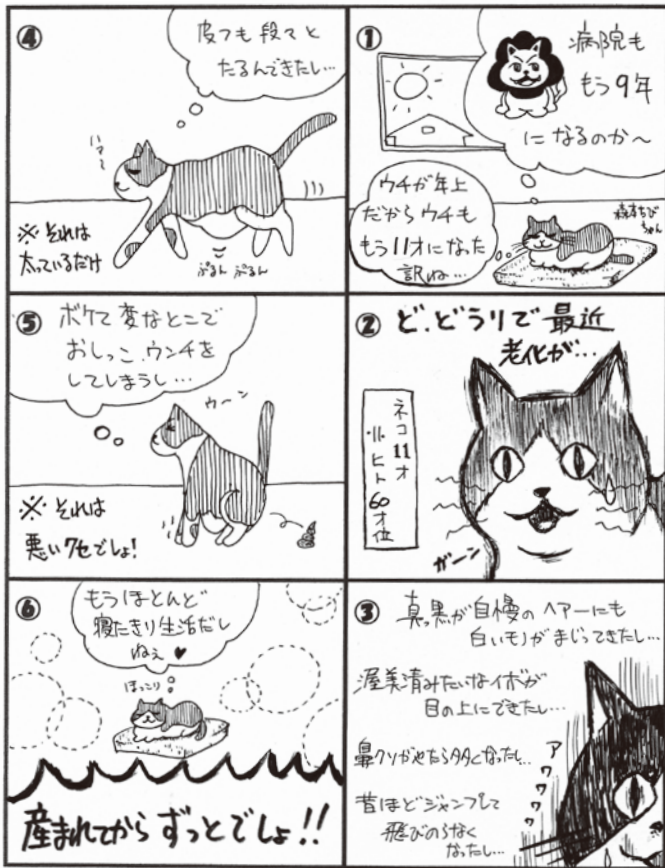 ①
病院も
もう9年
になるのか〜
ウチが年上
だからウチも
もう11才になった
訳ね…
森本ちび
ちゃん
②
ど、どうりで最近
老化が…
ネコ11才
ヒト60才位
ガーン
③
真っ黒が自慢のヘアーにも
白いモノがまじってきたし…
渥美清みたいなイボが
目の上にできたし…
鼻クソがやたらタタくなったし…
昔ほどジャンプして
飛びのらなく
なったし…
アワワワワ
④
皮フも段々と
たるんできたし…
※それは
太っているだけ
ぷるん ぷるん
⑤
ボケて変なとこで
おしっこ、ウンチを
してしまうし…
ウーン
※それは
悪いクセでしょ!
⑥
もうほとんど
寝たきり生活だし
ねぇ♥
ほっこり
産まれてからずっとでしょ!!